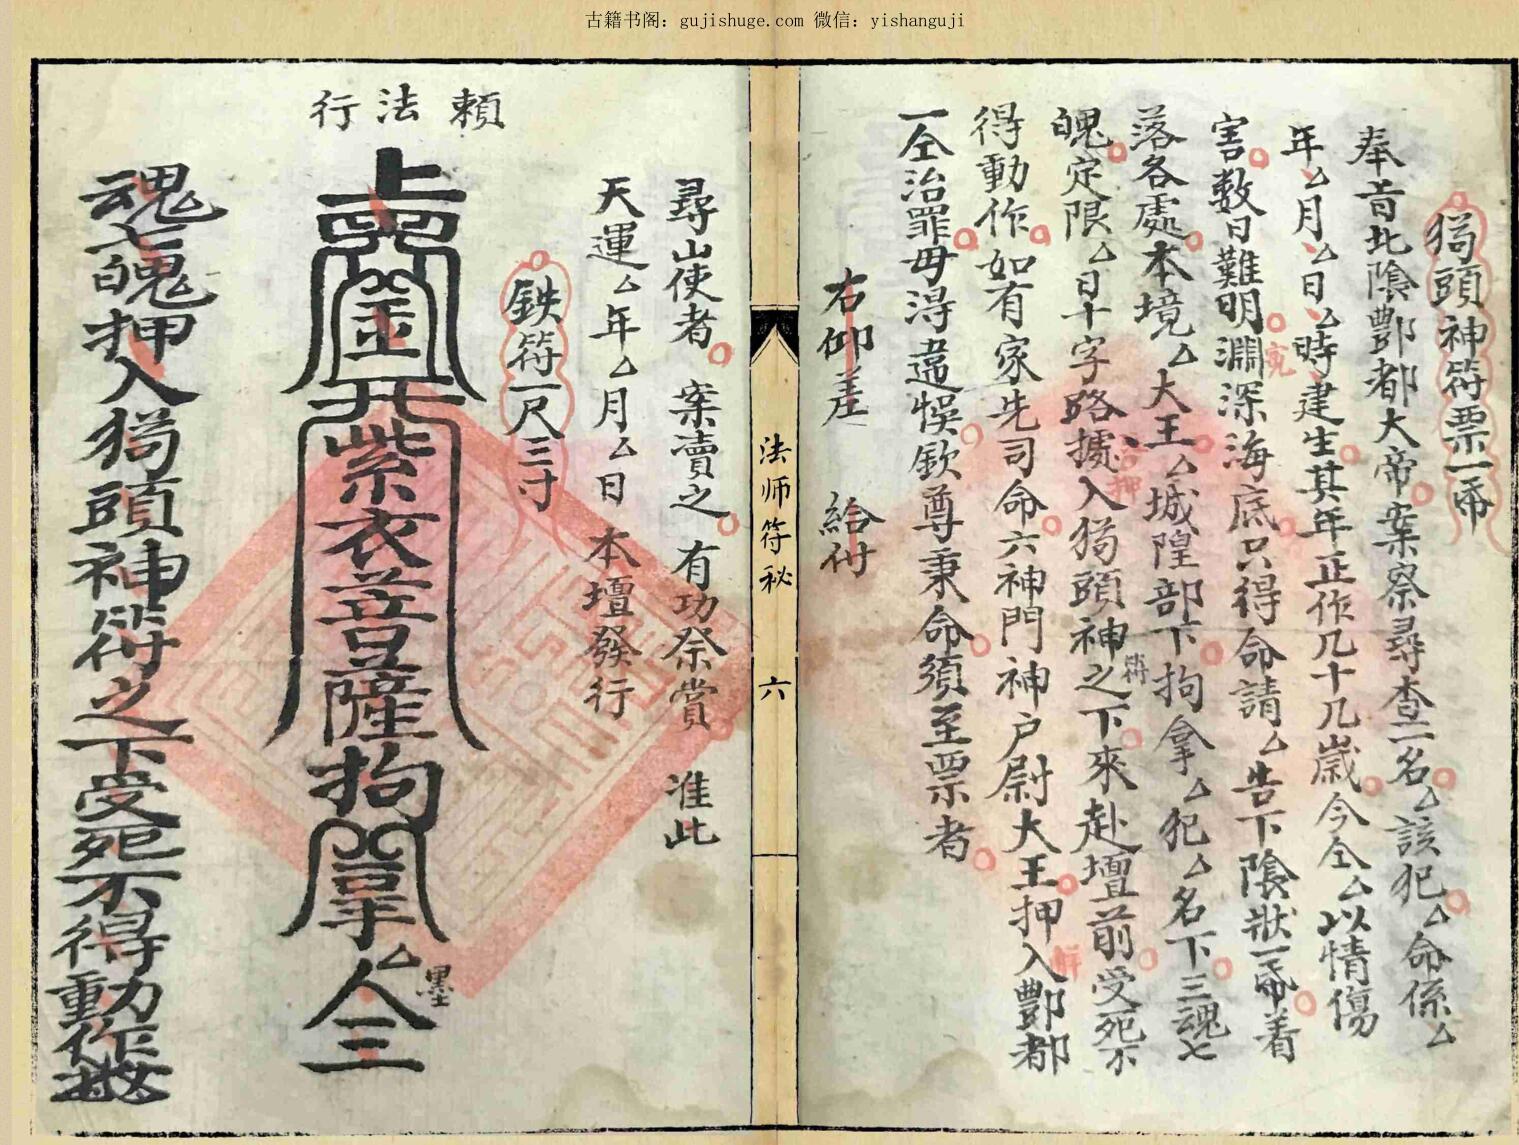 古籍书阁：gujishuge.com 微信：yishanguji
犸頭神符票一帋
奉旨北陰酆都大帝案察尋查一名厶該犯厶命係厶
年厶月厶日厶時建生其年正作几十几歲今仝厶以情傷
害数日難明淵深海底只得命請厶告下陰狀一帋着
冤
落各處本境厶大王厶城隍部下拘拿厶犯厶名下三魂七
魄定限厶日十字路據入犸頭神之下來赴壇前受死不
得動作如有家先司命六神門神户尉大王押入酆都
一仝治罪毋淂違悞欽尊秉命須至票者
右仰差 給付
法师符秘
六
尋山使者 案賣之 有功祭賞 准此
天運厶年厶月厶日 本壇發行
鉄符一尺三寸
頼法行
紫衣菩薩拘拿厶人三
墨
魂七魄押入犸頭神符之下受死不得動作